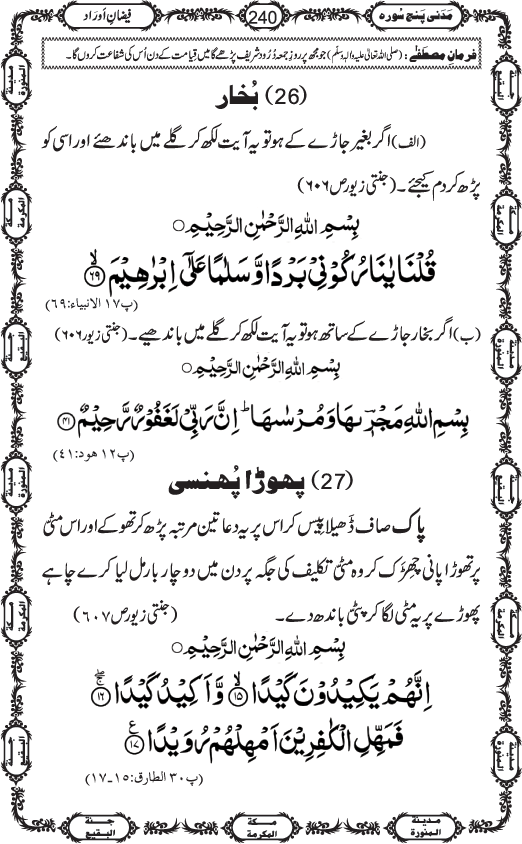 مَدَنی پنج سورہ 240 فیضانِ اَوراد
فرمانِ مصطفٰے : (صلی اللہ تعالیٰ علیہ والہ وسلم) جو مجھ پر روزِ جمعہ دُرُود شریف پڑھے گا میں قیامت کے دن اُس کی شفاعت کروں گا۔
(26) بُخار
(الف) اگر بغیر جاڑے کے ہو تو یہ آیت لکھ کر گلے میں باندھئے اور اسی کو
پڑھ کر دم کیجئے۔ (جنتی زیور ص ۶۰۶)
بِسْمِ اللہِ الرَّحْمٰنِ الرَّحِیْمِ ○
قُلْنَا یٰنَارُ کُوْنِیْ بَرْدًا وَّ سَلٰمًا عَلٰۤی اِبْرٰهِیْمَ ۙ﴿۶۹﴾
(پ۱۷ الانبیاء: ۶۹)
(ب) اگر بخار جاڑے کے ساتھ ہو تو یہ آیت لکھ کر گلے میں باندھیے۔ (جنتی زیور ۶۰۶)
بِسْمِ اللہِ الرَّحْمٰنِ الرَّحِیْمِ ○
بِسْمِ اللهِ مَجْرٖىهَا وَ مُرْسٰىهَا ؕ اِنَّ رَبِّیْ لَغَفُوْرٌ رَّحِیْمٌ ﴿۴۱﴾
(پ۱۲ ھود: ۴۱)
(27) پھوڑا پُھنسی
پاک صاف ڈَھیلا پیس کر اس پر یہ دعا تین مرتبہ پڑھ کر تھوکے اور اس مٹی
پر تھوڑا پانی چھڑک کر وہ مٹی تکلیف کی جگہ پر دن میں دو چار بار مل لیا کرے چاہے
پھوڑے پر یہ مٹی لگا کر پٹی باندھ دے۔ (جنتی زیور ص ۶۰۷)
بِسْمِ اللہِ الرَّحْمٰنِ الرَّحِیْمِ ○
اِنَّهُمْ یَكِیْدُوْنَ كَیْدًا ﴿ۙ۱۵﴾ وَّ اَكِیْدُ كَیْدًا ﴿ۚۖ۱۶﴾
فَمَهِّلِ الْكٰفِرِیْنَ اَمْهِلْهُمْ رُوَیْدًا ﴿۱۷﴾ ع
(پ۳۰ الطارق: ۱۵۔۱۷)
مدینۃ المنورۃ
جنۃ البقیع
مکۃ المکرمۃ
مکۃ المکرمۃ
جنۃ البقیع
مدینۃ المنورۃ
مدینۃ المنورۃ
جنۃ البقیع
مکۃ المکرمۃ
مکۃ المکرمۃ
جنۃ البقیع
مدینۃ المنورۃ
جنۃ البقیع
مکۃ المکرمۃ
مدینۃ المنورۃ